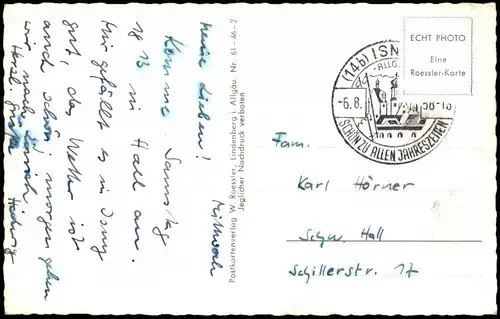 Mittwoch
Meine Lieben!
Komme Samstag
18 13 in Hall an.
Mir gefällt es in Isny
gut, das Wetter ist
auch schön, morgen gehen
wir nach
Herzl. Grüße
Hedwig
Postkartenverlag W. Roessler, Lindenberg i. Allgäu. Nr. 61-46-2
Jeglicher Nachdruck verboten
(14b) ISN
-6.8.
SCHÖN ZU ALLEN JAHRESZEITEN
ECHT PHOTO
Eine
Roessler-Karte
Fam.
Karl Hörner
Schw. Hall
Schillerstr. 17